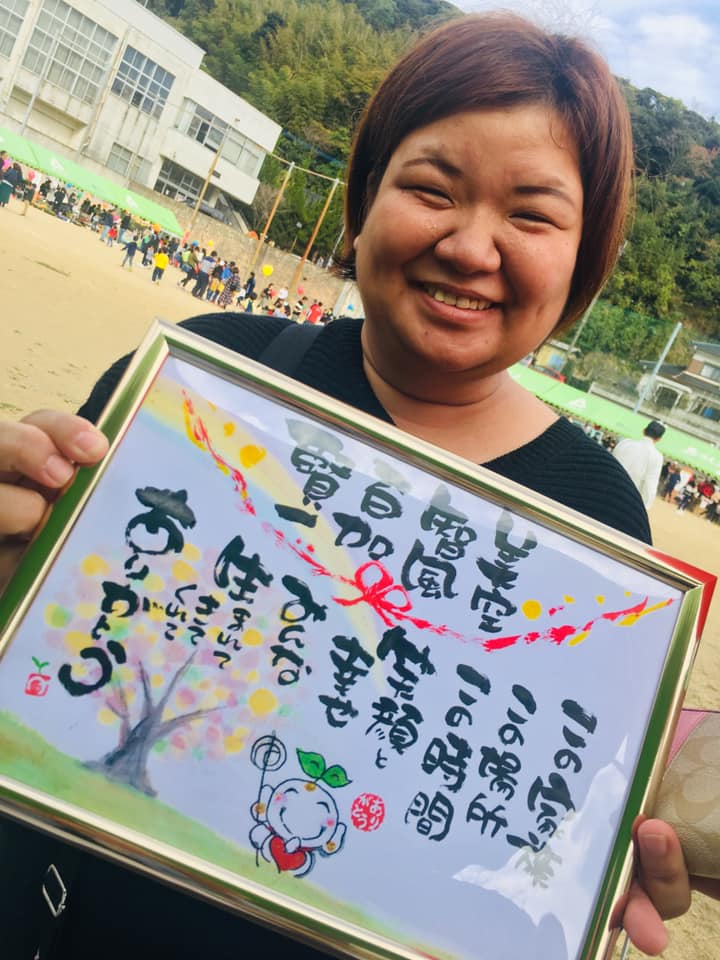 美空
智風
百加
賢一
この家族
この場所
この時間
笑顔と
幸せ
みんな
生まれて
きて
くれて
ありがとう
ありがとう